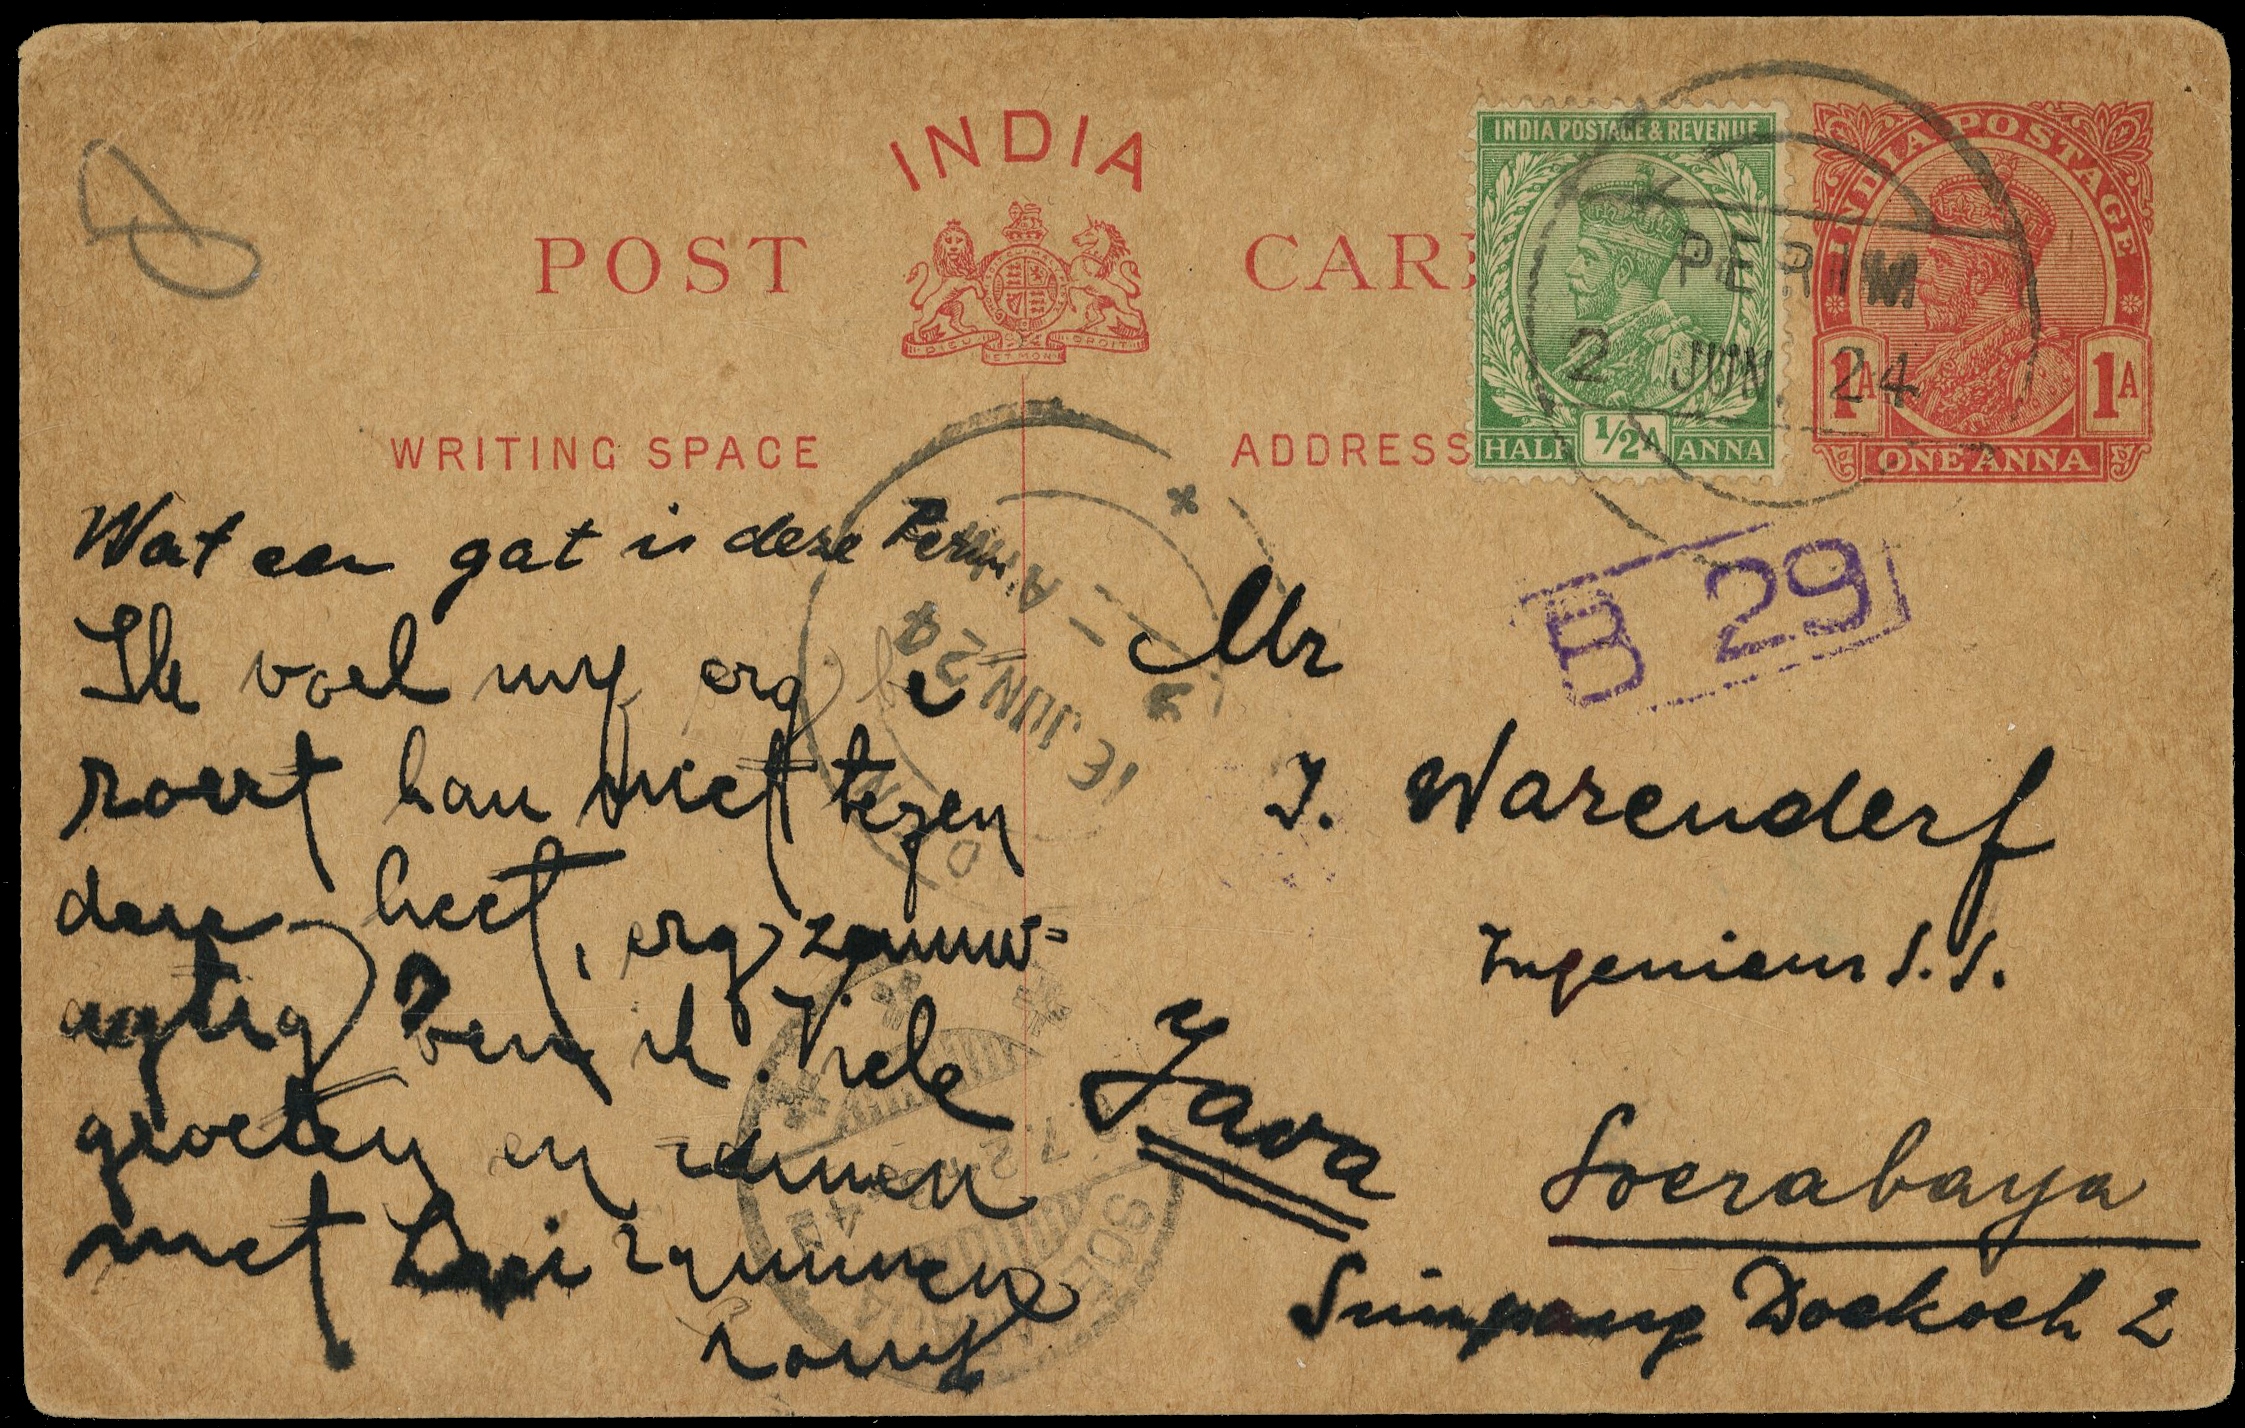 INDIA
POST CARD
DIEU ET MON DROIT
WRITING SPACE
ADDRESS
INDIA POSTAGE & REVENUE
HALF 1/2A ANNA
INDIA POSTAGE
1A 1A
ONE ANNA
PERIM
2 JUN. 24
B 29
Wat een gat is deze Perim.
Ik voel mij erg be
roert kan niet tegen
deze heet, erg zenuw=
agtig ben ik. Vele
groeten en
met
Mr
J. Warenderf
Ingenieur S.S.
Java
Soerabaya
Simpang Doekoeh 2
A.M.
16 JUN. 24
7.2
SOERABAJA